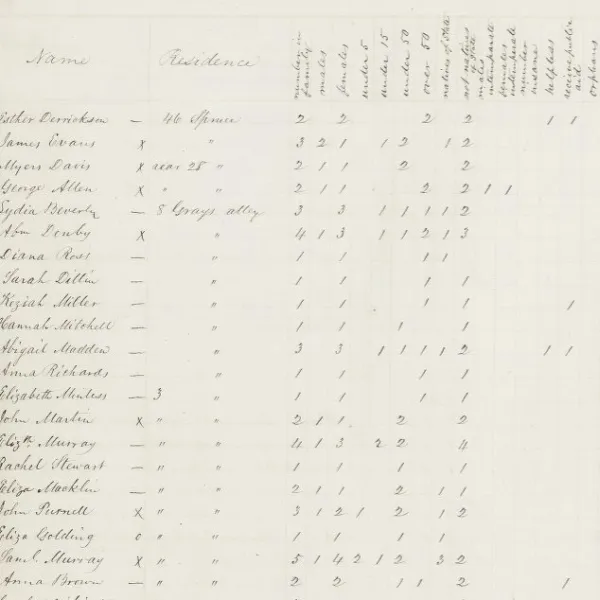 Name Residence number in family males females under 5 under 15 under 50 over 50 natives of State not natives of State males intemperate females intemperate number insane helpless receive public aid orphans
Esther Derrickson — 46 Spruce 2 2 2 2 1 1
James Evans x " " 3 2 1 1 2 1 2
Myers Davis x rear 28 " 2 1 1 2 2
George Allen x " " 2 1 1 2 2 1 1
Lydia Beverly — 8 Grays alley 3 3 1 1 1 1 2
Abm Denby x " 4 1 3 1 1 2 1 3
Diana Ross — " 1 1 1 1
Sarah Dillin — " 1 1 1 1
Keziah Miller — " 1 1 1 1 1
Hannah Mitchell — " 1 1 1 1
Abigail Madden — " 3 3 1 1 1 1 2 1 1
Anna Richards — " 1 1 1 1
Elizabeth — 3 " 1 1 1 1
John Martin x " " 2 1 1 2 2
Elizth Murray — " " 4 1 3 2 2 4
Rachel Stewart — " " 1 1 1 1
Eliza Macklin — " " 2 1 1 2 1 1
John Purnell x " " 3 1 2 1 2 1 2
Eliza Golding o " " 1 1 1 1
Saml. Murray x " " 5 1 4 2 1 2 3 2
Anna Brown — " " 2 2 1 1 2 1